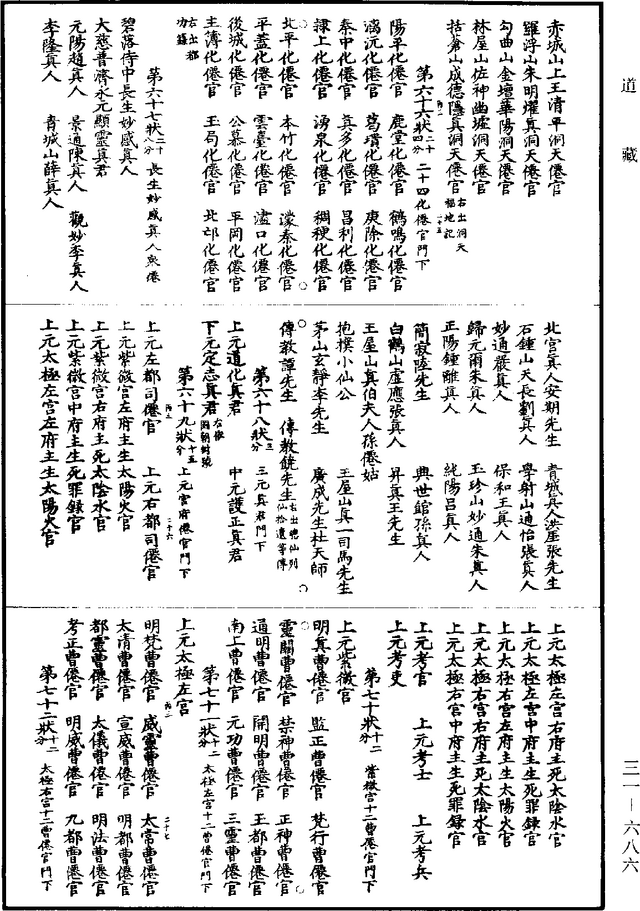 道藏
赤城山上王清平洞天僊官
羅浮山朱明燿真洞天僊官
勾曲山金壇華陽洞天僊官
林屋山佐神幽墟洞天僊官
括蒼山成德隱真洞天僊官 右出洞天福地記 二十五
第六十六狀二十四分 二十四化僊官門下
陽平化僊官 鹿堂化僊官 鶴鳴化僊官
漓沅化僊官 葛璝化僊官 庚除化僊官
秦中化僊官 真多化僊官 昌利化僊官
隸上化僊官 湧泉化僊官 稠稉化僊官
北平化僊官 本竹化僊官 濛秦化僊官
平蓋化僊官 雲臺化僊官 濜口化僊官
後城化僊官 公慕化僊官 平岡化僊官
主簿化僊官 玉局化僊官 北邙化僊官
右出都功籙
第六十七狀二十八分 長生妙感真人衆僊
碧落侍中長生妙感真人
大慈普濟永元顯靈真君
元陽趙真人 景通陳真人 觀妙李真人
李隆真人 青城山薛真人
北宮真人安期先生 青城真人洪崖張先生
石鍾山天長劉真人 學射山通怡張真人
妙通嚴真人 保和王真人
歸元爾朱真人 玉珍山妙通朱真人
正陽鍾離真人 純陽呂真人
簡寂陸先生 典世館孫真人
白鶴山虛應張真人 昇真王先生
王屋山真伯夫人孫僊姑
抱樸小仙公 王屋山真一司馬先生
茅山玄靜李先生 廣成先生杜天師
傳教譚先生 傳教饒先生 右出總仙列仙拾遺等傳
第六十八狀三分 三元真君門下
上元道化真君 中元護正真君
下元定志真君 右徽國朝封號
第六十九狀十五分 上元宮府僊官門下
上元左都司僊官 上元右都司僊官 二十六
上元紫微宮左府主生太陽火官
上元紫微宮右府主死太陰水官
上元紫微宮中府主生死罪錄官
上元太極左宮左府主生太陽火官
上元太極左宮右府主死太陰水官
上元太極左宮中府主生死罪錄官
上元太極右宮左府主生太陽火官
上元太極右宮右府主死太陰水官
上元太極右宮中府主生死罪錄官
上元考官 上元考士 上元考兵
上元考吏
第七十狀十二分 紫微宮十二曹僊官門下
上元紫微宮
明真曹僊官 監正曹僊官 梵行曹僊官
靈關曹僊官 禁神曹僊官 正神曹僊官
通明曹僊官 開明曹僊官 王都曹僊官
南上曹僊官 元功曹僊官 三靈曹僊官
第七十一狀十二分 太極左宮十二曹僊官門下
上元太極左宮
明梵曹僊官 威靈曹僊官 太常曹僊官 二十七
太清曹僊官 宣威曹僊官 明都曹僊官
都靈曹僊官 太儀曹僊官 明法曹僊官
考正曹僊官 明威曹僊官 九都曹僊官
第七十二狀十二分 太極右宮十二曹僊官門下
三一—六八六